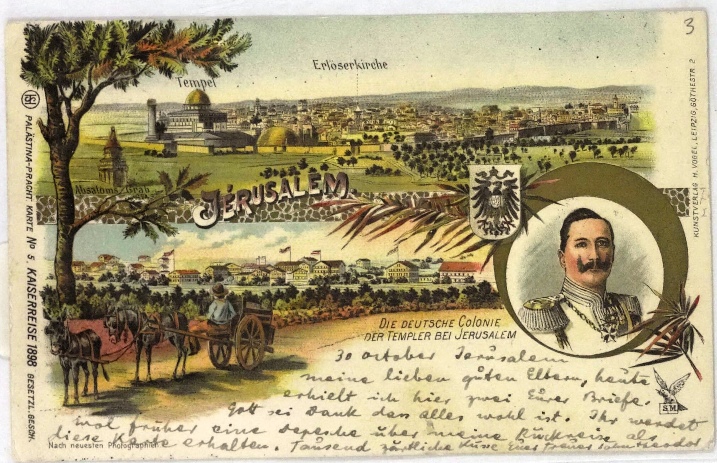 3
Erlöserkirche
Tempel
Absaloms Grab
JÉRUSALEM.
DIE DEUTSCHE COLONIE
DER TEMPLER BEI JERUSALEM
PALÄSTINA-PRACHT KARTE No 5. KAISERREISE 1898 GESETZL. GESCH.
KUNSTVERLAG H. VOGEL, LEIPZIG, GÖTHESTR. 2
30 october Jerusalem
meine lieben guten Eltern, heute
erhielt ich hier zwei Eurer Briefe.
Gott sei Dank das alles wohl ist. Ihr werdet
mal früher eine depesche über meine Rückreise als
diese Karte erhalten. Tausend zärtliche Küsse Euer treuer
Nach neuesten Photographien